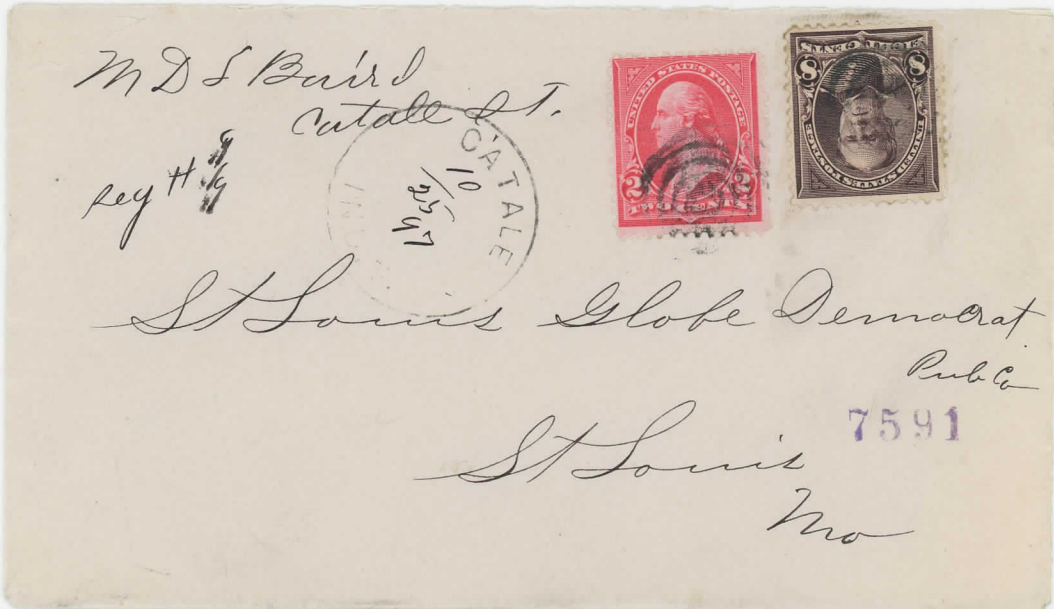 M D L Baird
Catale I.T.
Reg #
CATALE
IND
10
25
97
UNITED STATES POSTAGE
2 2
TWO CENTS
UNITED STATES POSTAGE
8 8
EIGHT CENTS
St Louis Globe Democrat
Pub Co
7591
St Louis
Mo